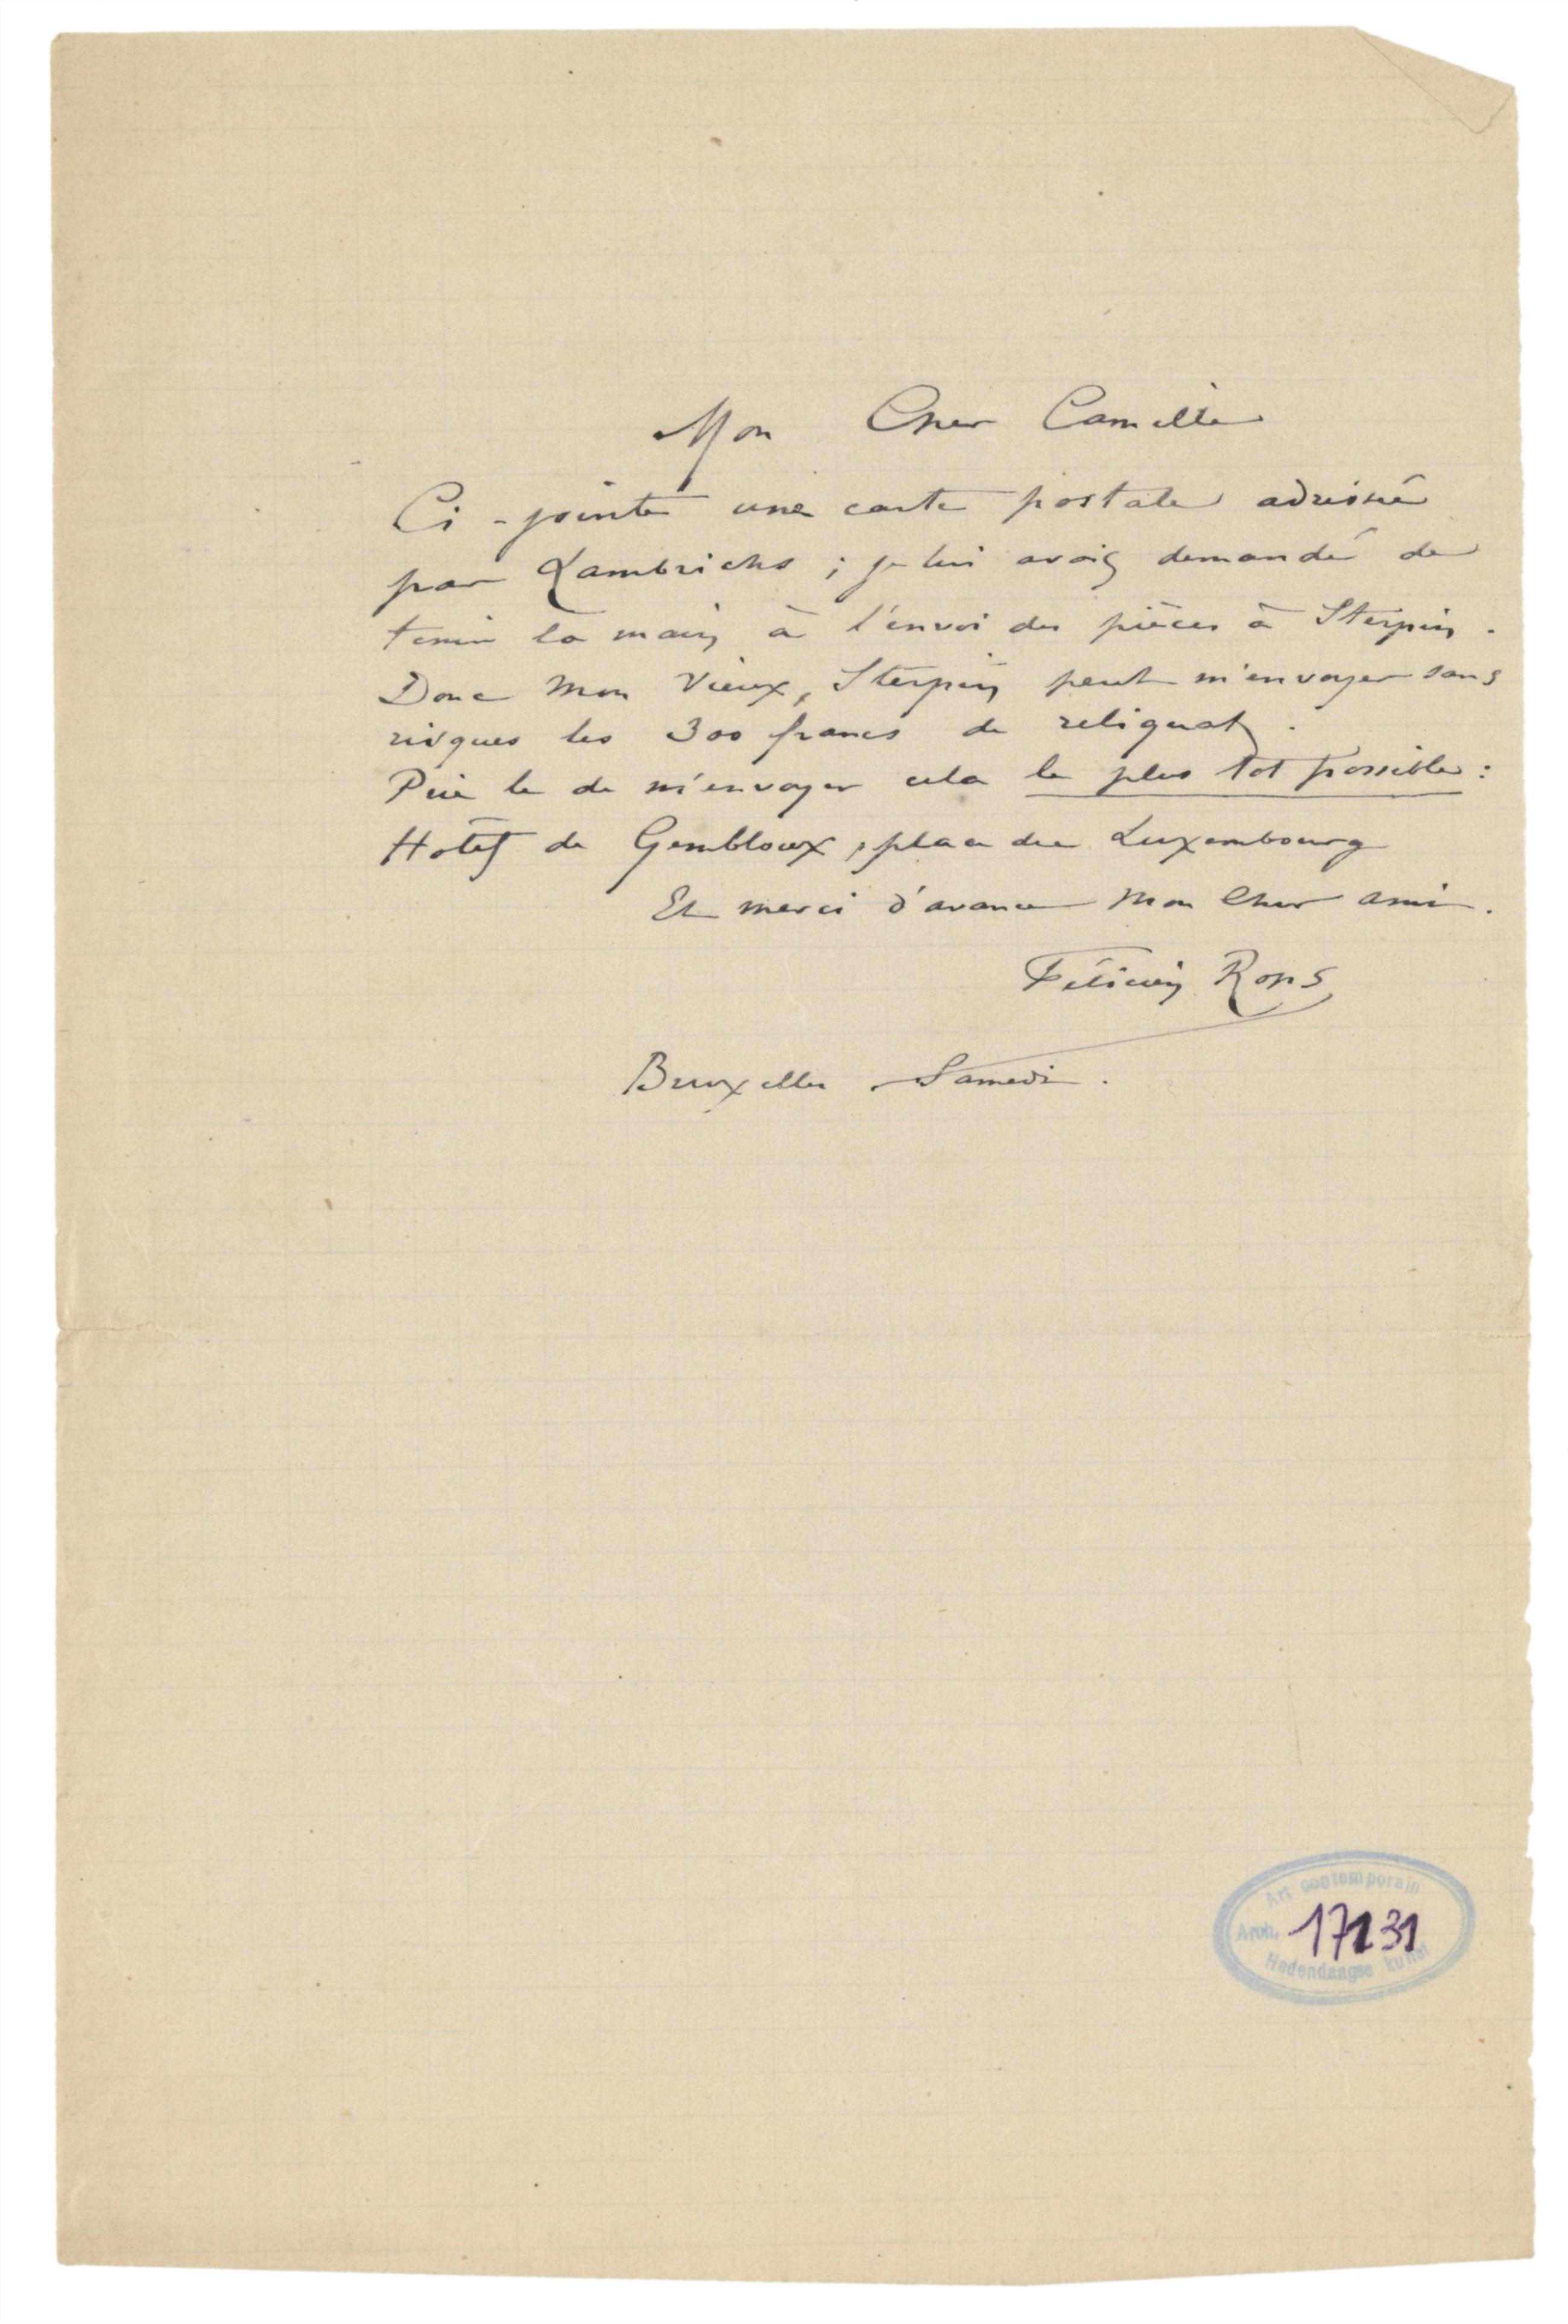 Mon Cher Camille
Ci-jointe une carte postale adressée
par Lambrichs ; je lui avais demandé de
tenir la main à l'envoi des pièces à Sterpin.
Donc Mon Vieux, Sterpin peut m'envoyer sans
risques les 300 francs de reliquat.
Prie le de m'envoyer cela le plus tot possible :
Hôtel de Gembloux, place du Luxembourg
Et merci d'avance Mon Cher ami.
Félicien Rops
Bruxelles Samedi.
Art contemporain
Arch. 17131
Hedendaagse kunst